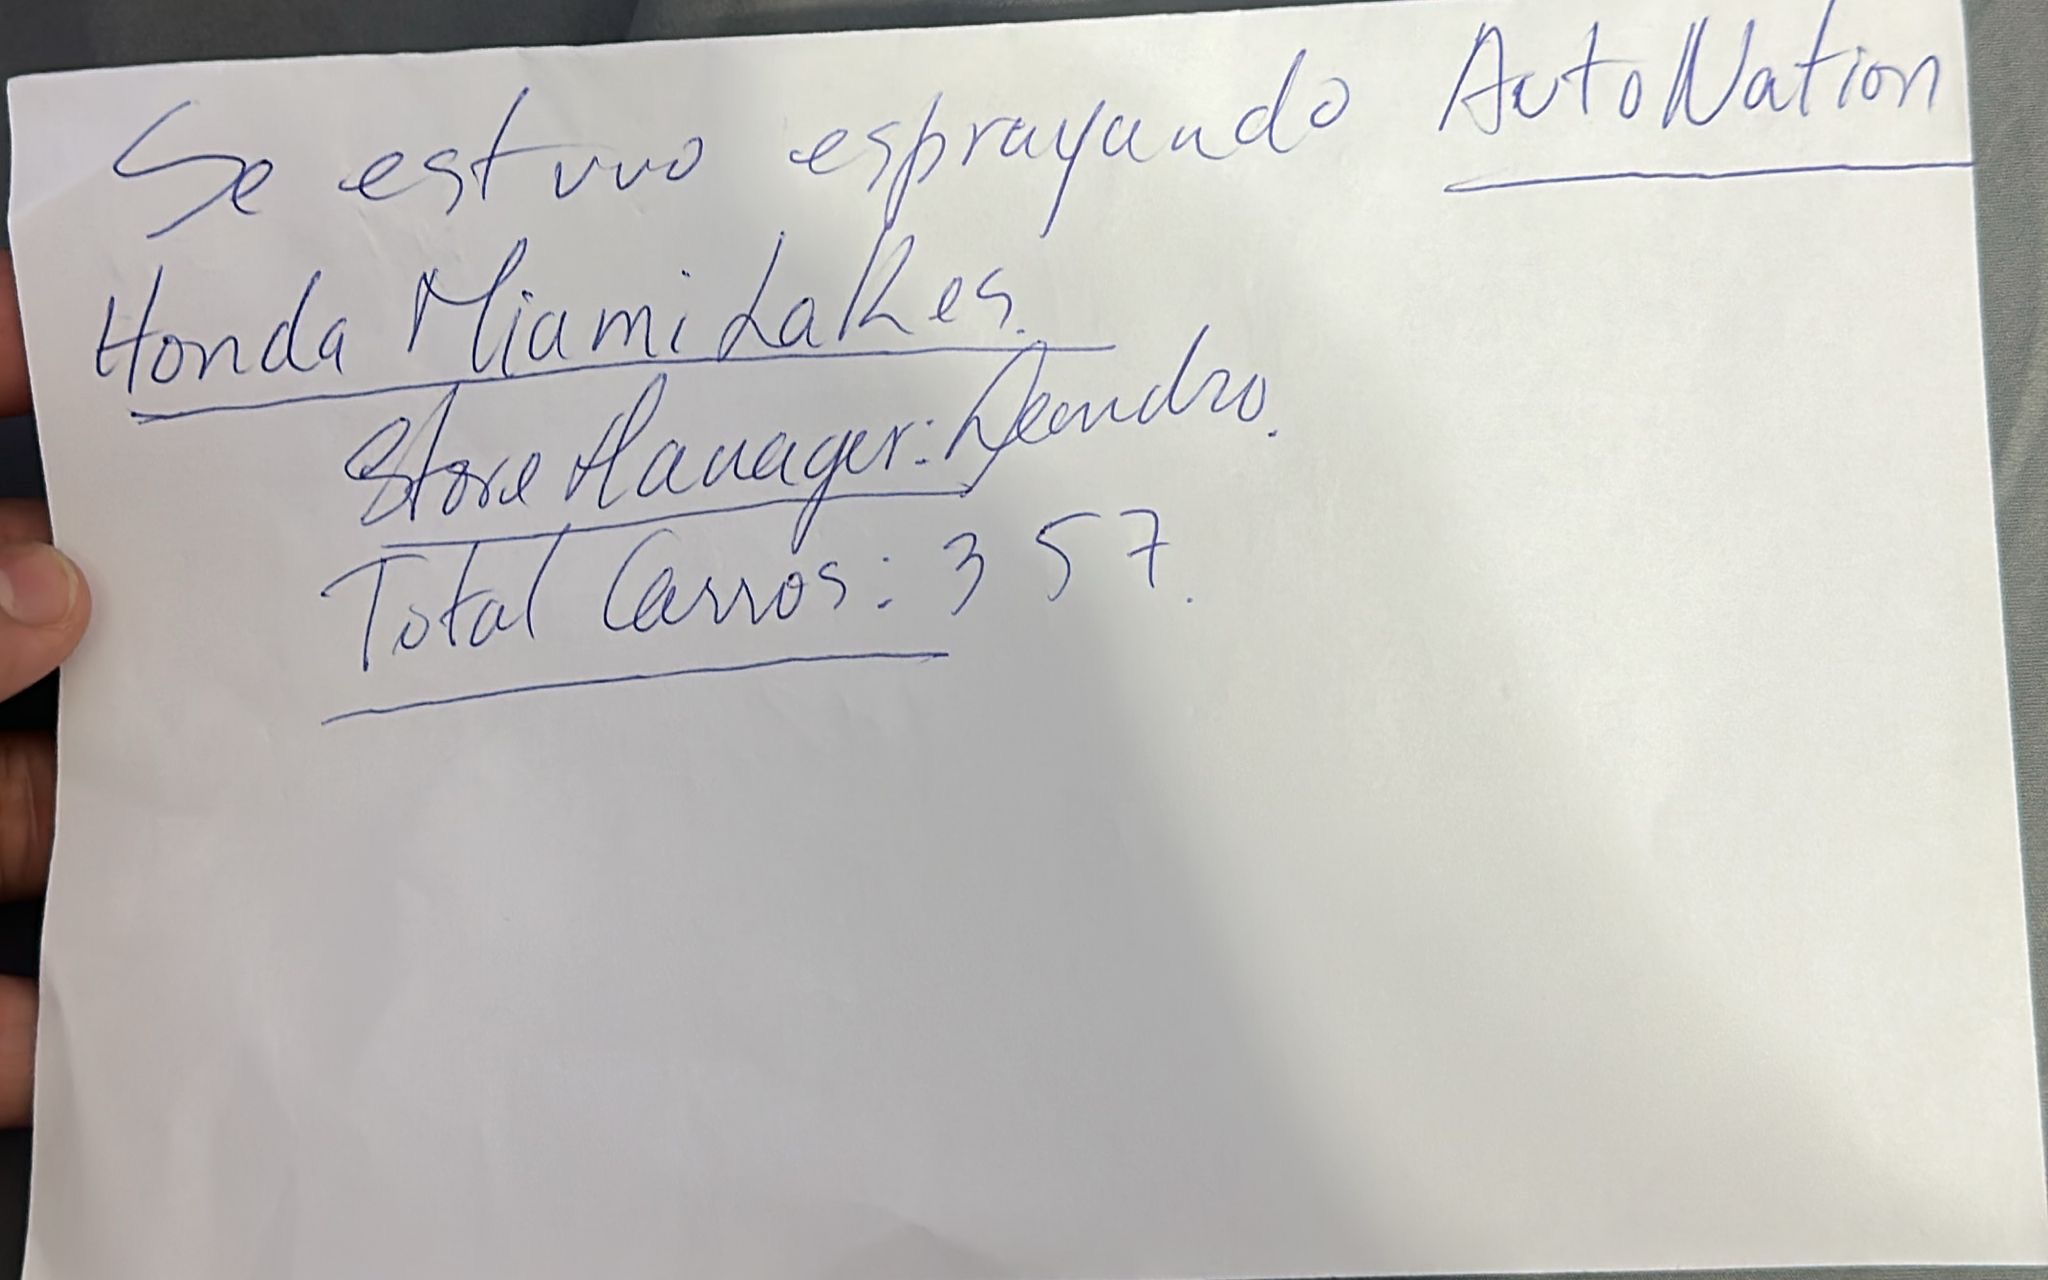 Se estuvo esprayando AutoNation
Honda Miami Lakes.
Store Manager: Leandro.
Total Carros: 357.